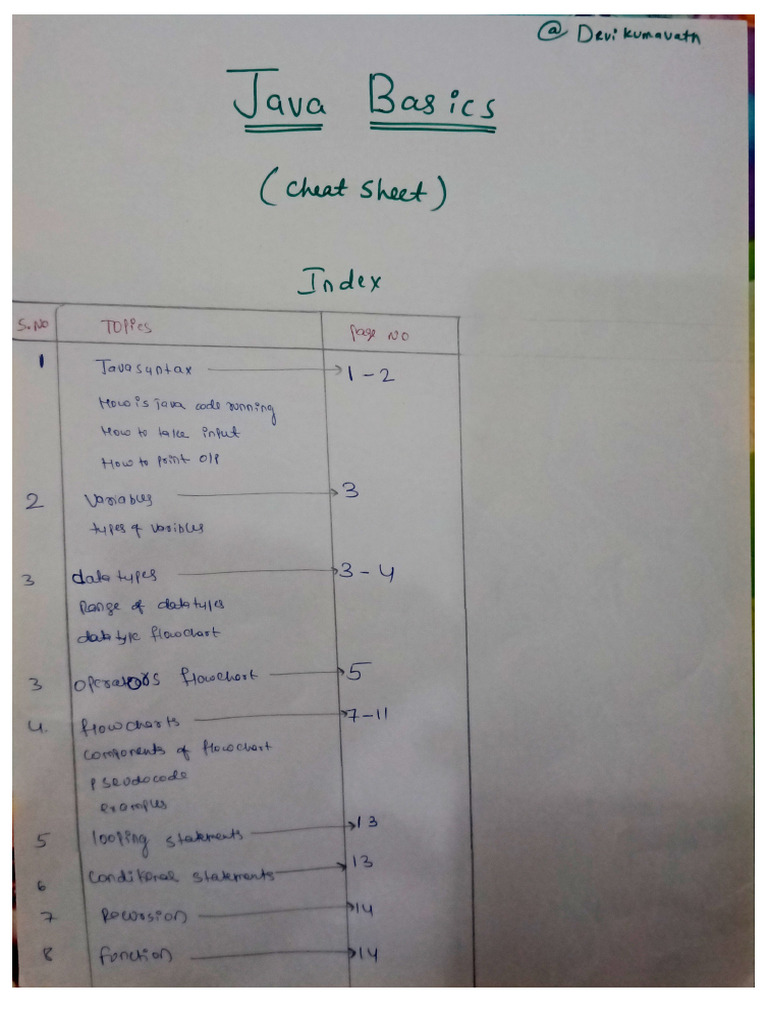 @ Devikumavath
Java Basics
(cheat sheet)
Index
S.No Topics page No
1 Java syntax 1-2
How is java code running
How to take input
How to print O/P
2 Variables 3
types of varibles
3 data types 3-4
Range of data types
data type flowchart
3 operators flowchart 5
4. flowcharts 7-11
components of flowchart
pseudocode
examples
5 looping statements 13
6 conditional statements 13
7 Recursion 14
8 function 14